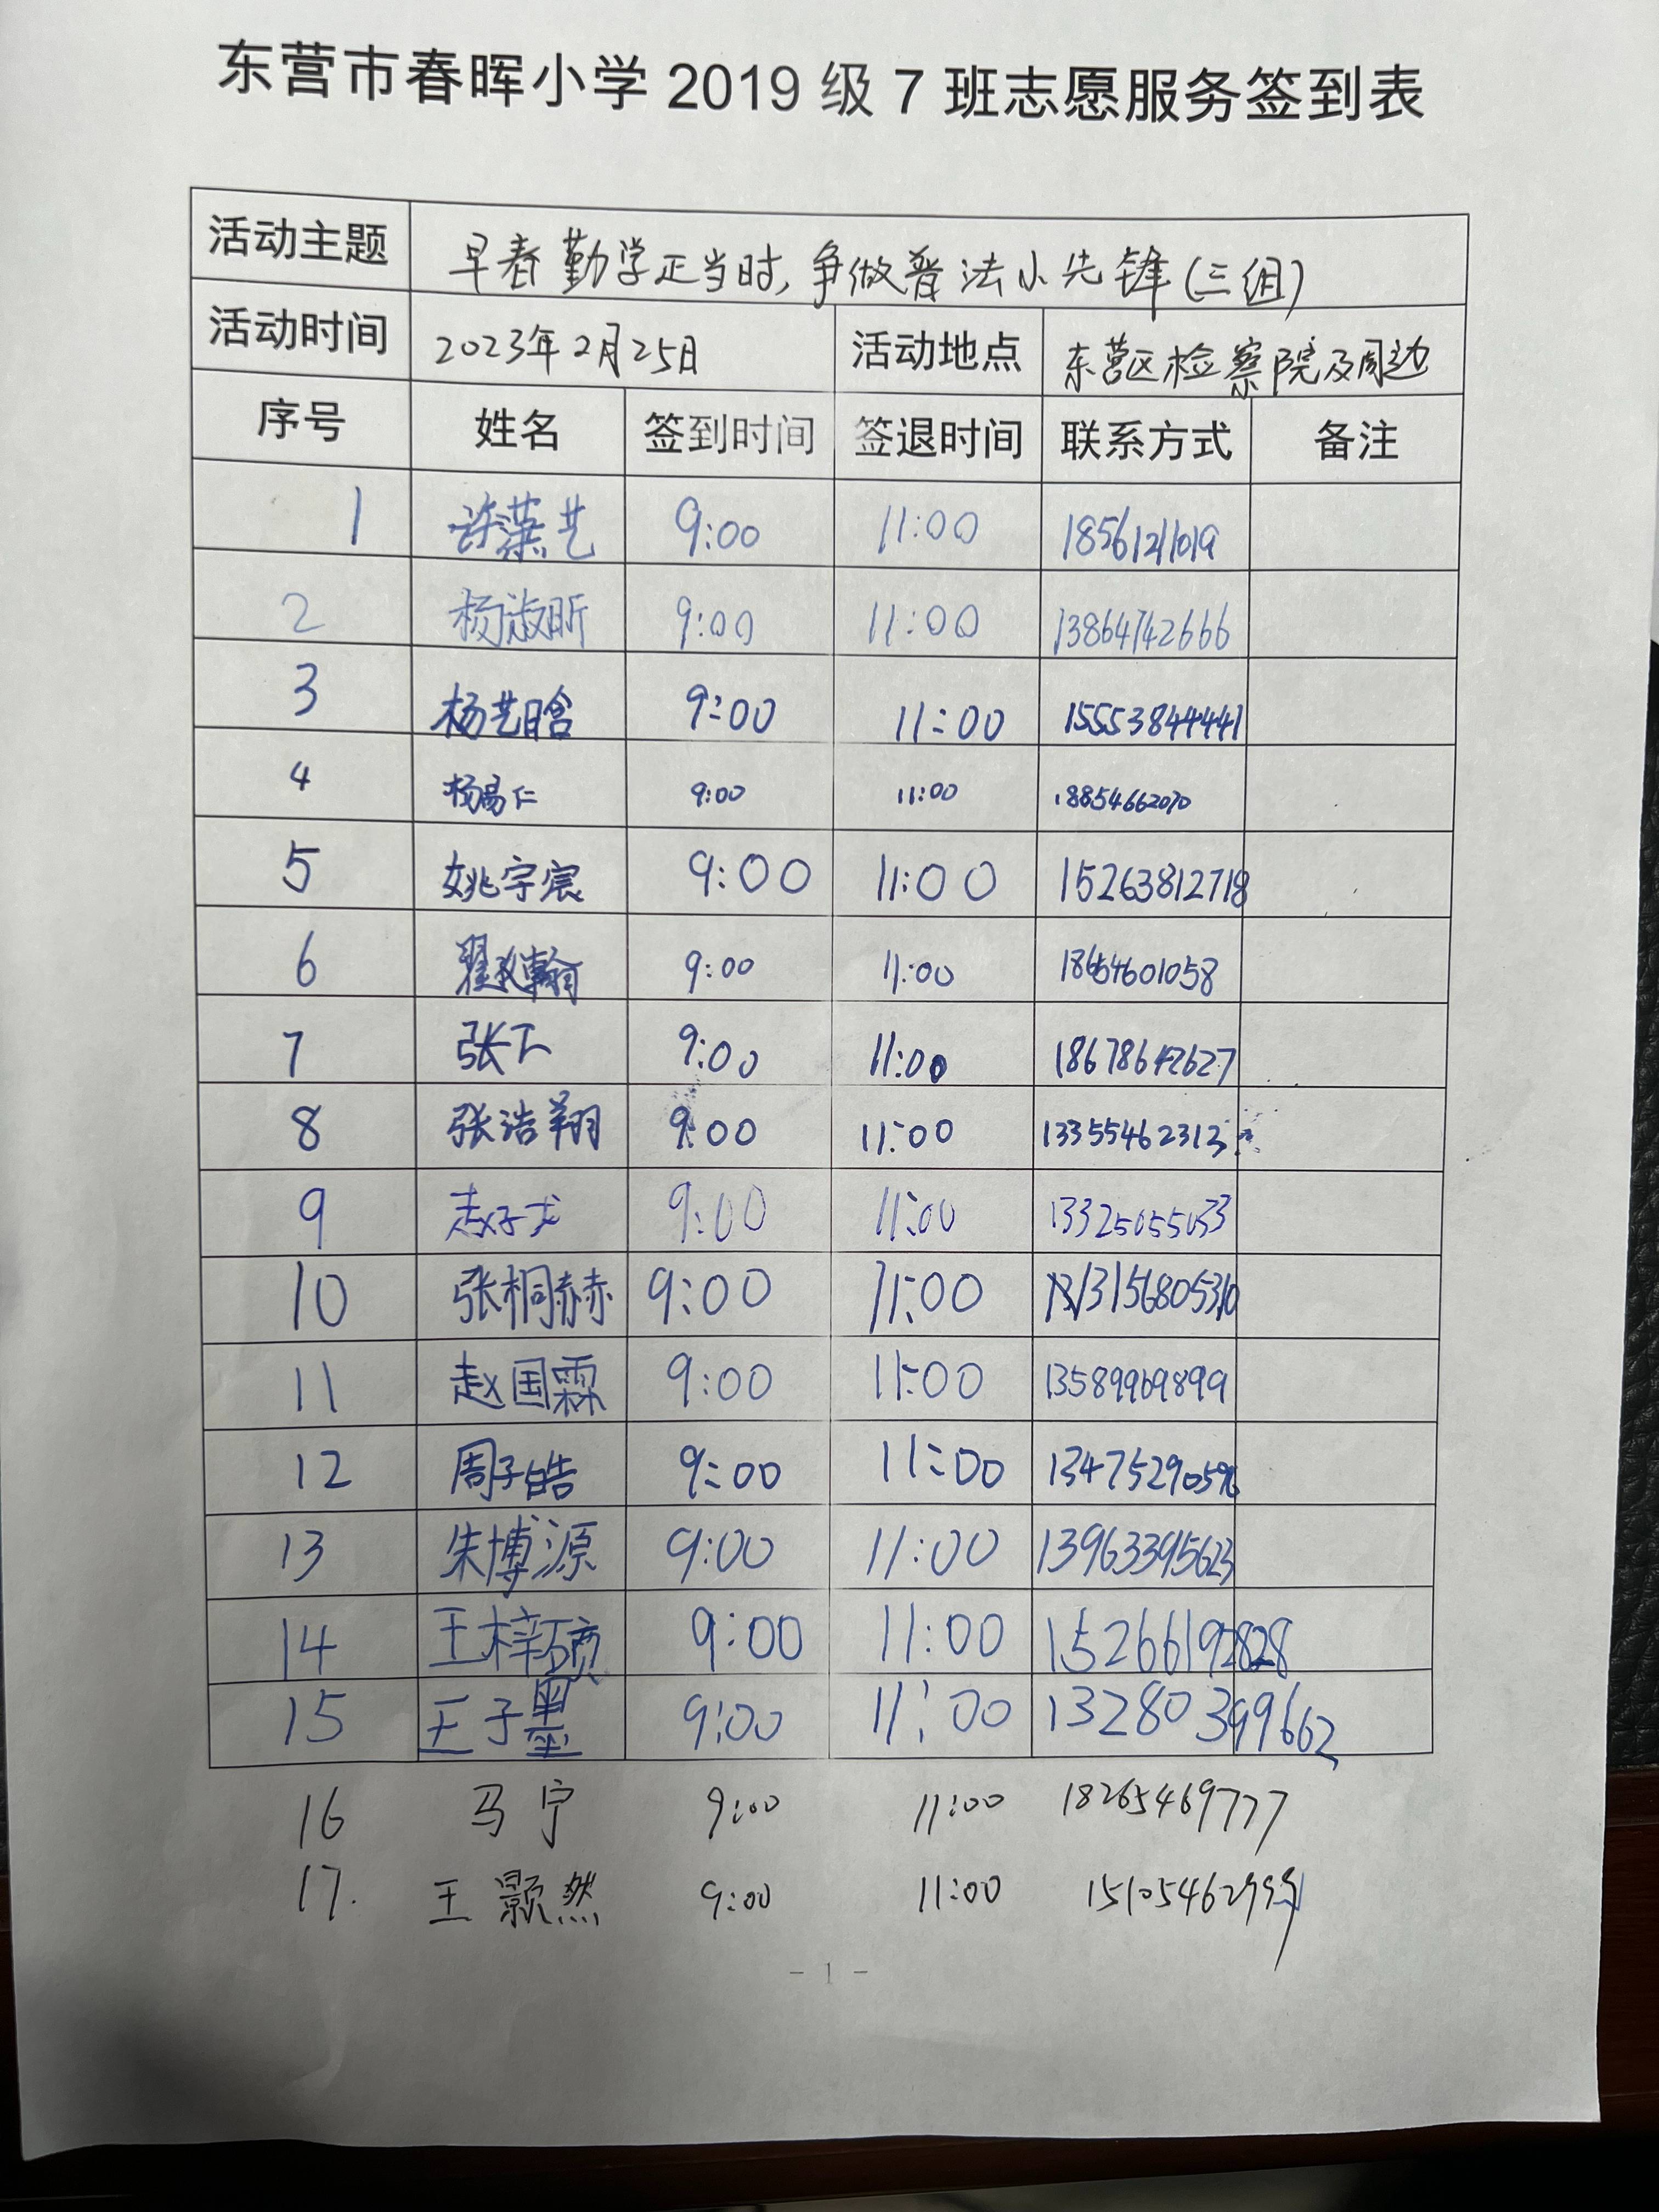 东营市春晖小学 2019 级 7 班志愿服务签到表
活动主题 早春勤学正当时,争做普法小先锋(三组)
活动时间 2023年2月25日 活动地点 东营区检察院及周边
序号 姓名 签到时间 签退时间 联系方式 备注
1 许潆艺 9:00 11:00 18561211019
2 杨淑昕 9:00 11:00 13864742666
3 杨艺晗 9:00 11:00 15553844441
4 杨易仁 9:00 11:00 18854662070
5 姚宇宸 9:00 11:00 15263812718
6 翟 瀚 9:00 11:00 18654601058
7 张 9:00 11:00 18678642627
8 张浩翔 9:00 11:00 13355462313
9 赵子龙 9:00 11:00 13325055033
10 张桐赫 9:00 11:00 13156805310
11 赵国霖 9:00 11:00 13589969899
12 周子皓 9:00 11:00 13475290596
13 朱博源 9:00 11:00 13963395623
14 王梓硕 9:00 11:00 15266192828
15 王子墨 9:00 11:00 13280399662
16 马宁 9:00 11:00 18265469777
17. 王颢然 9:00 11:00 15105462999
- 1 -